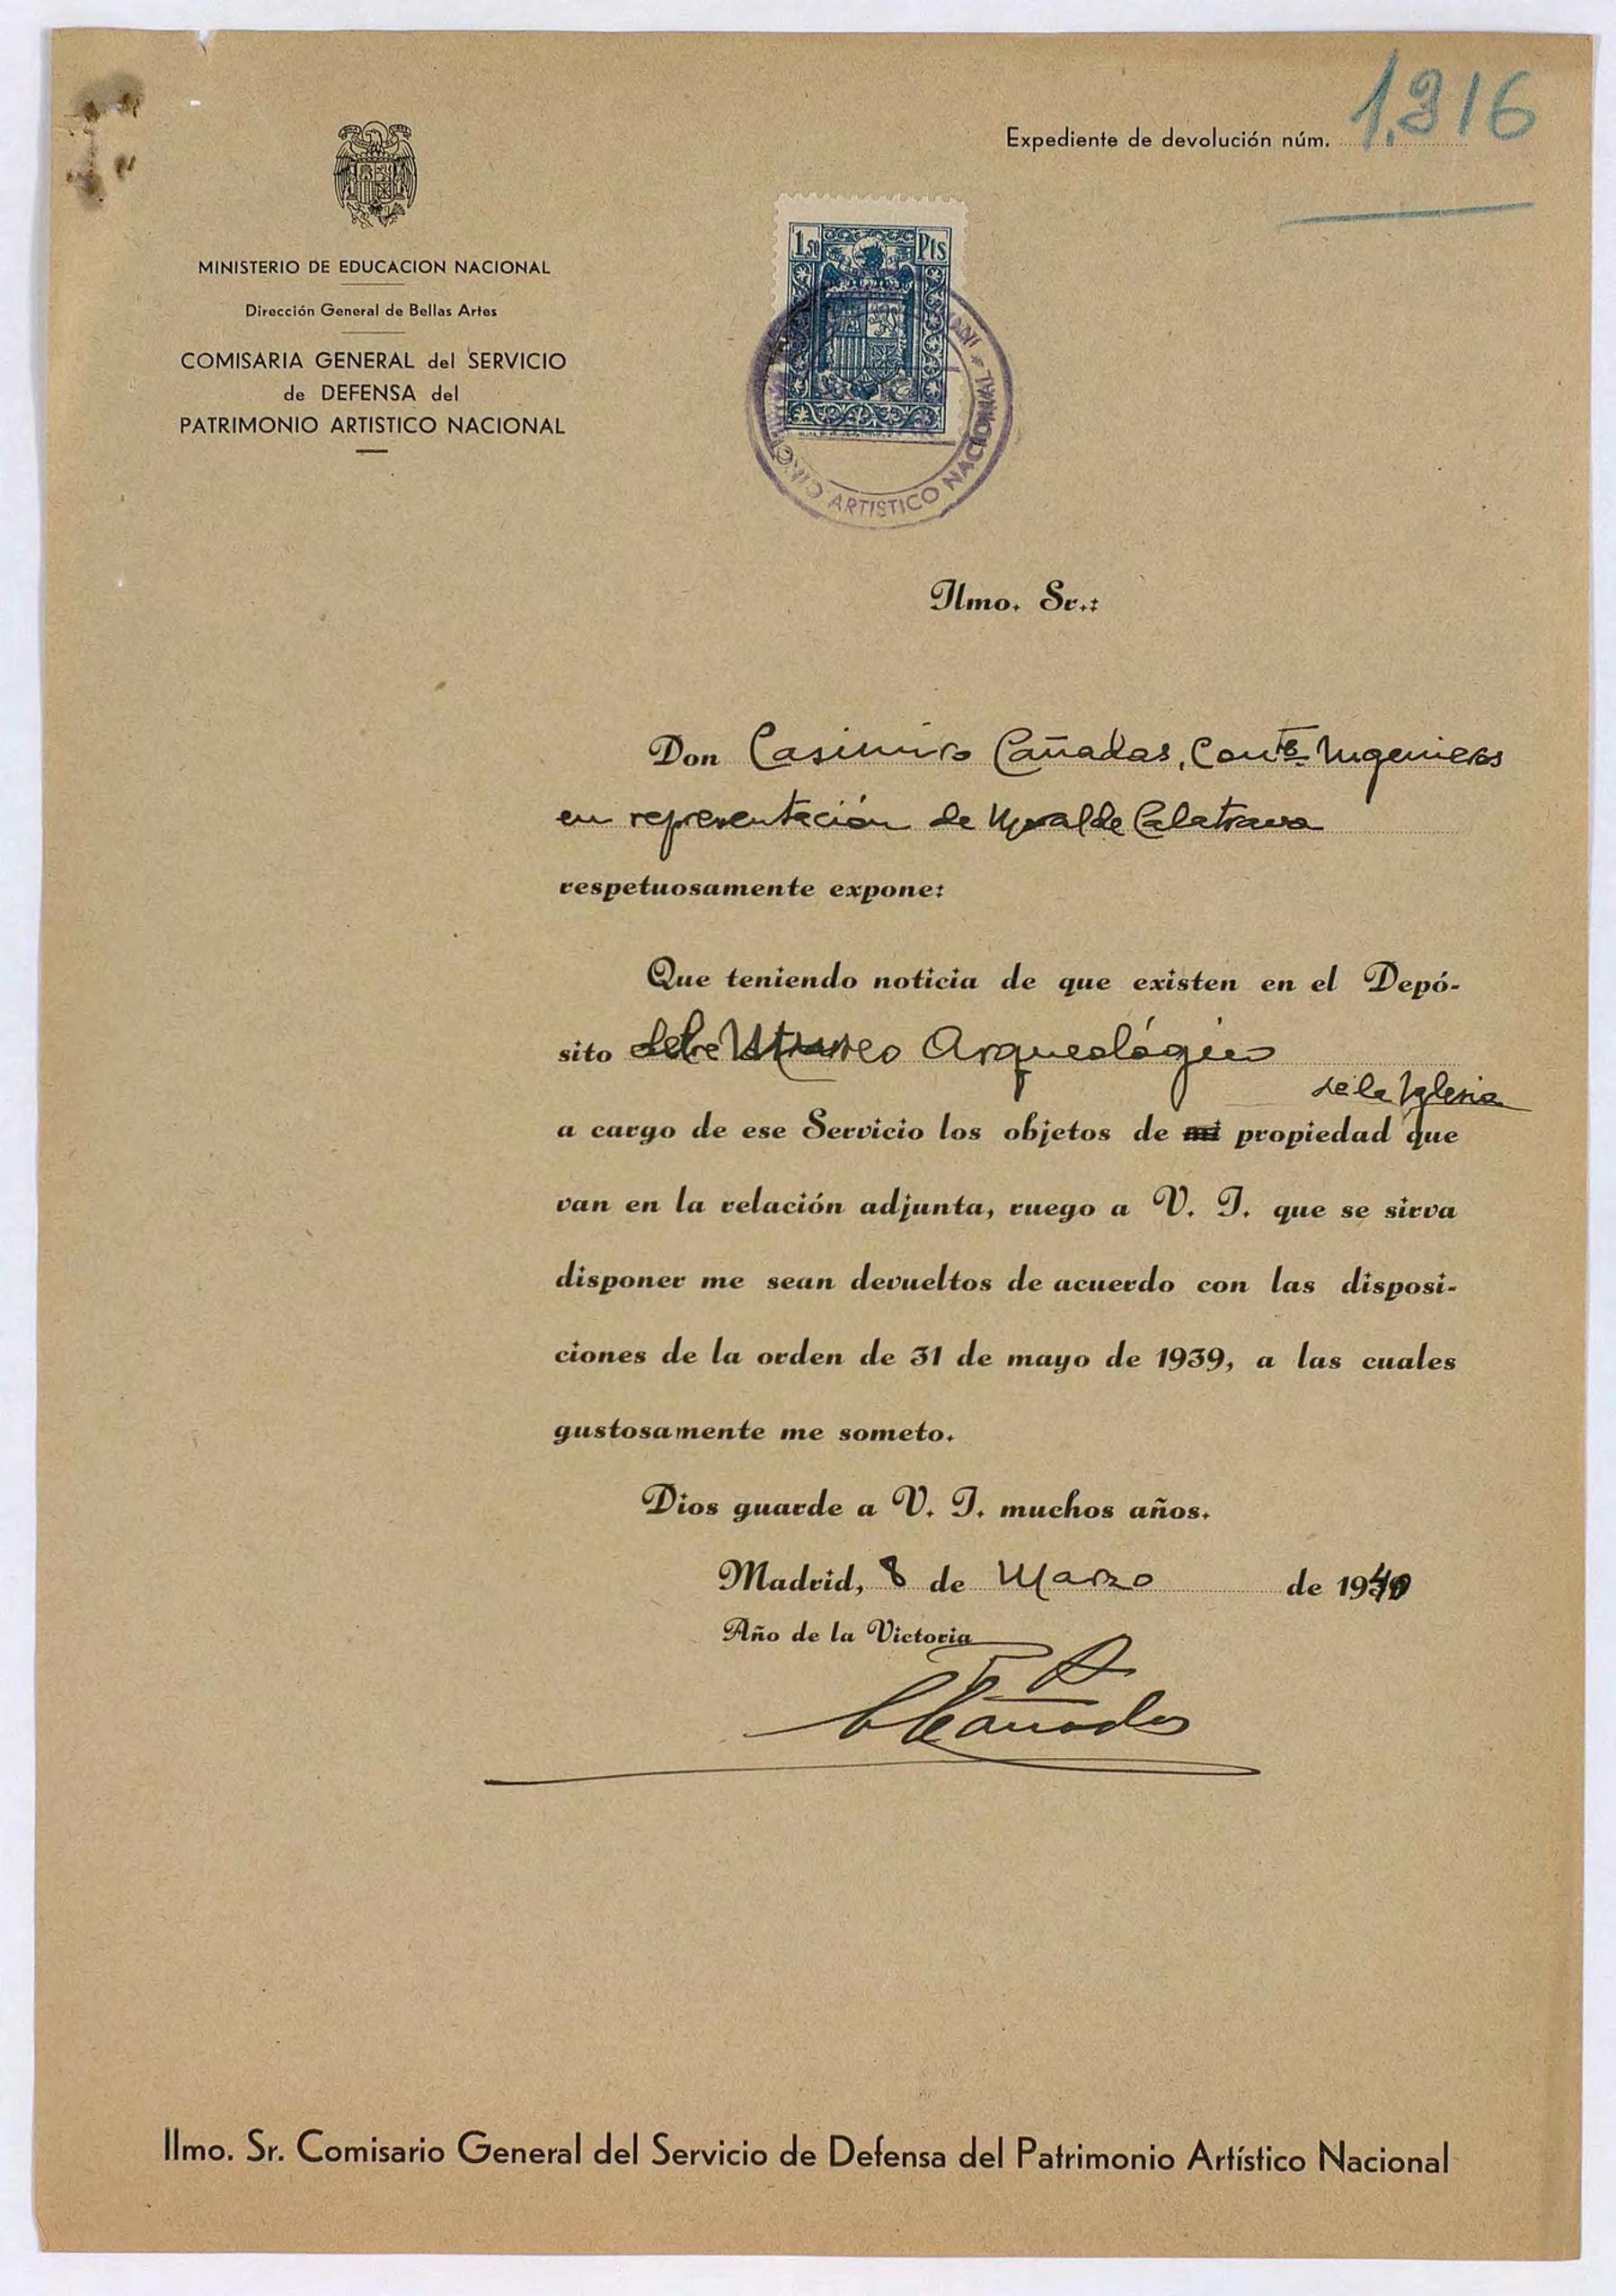 Expediente de devolución núm. 1.316
MINISTERIO DE EDUCACION NACIONAL
Dirección General de Bellas Artes
COMISARIA GENERAL del SERVICIO
de DEFENSA del
PATRIMONIO ARTISTICO NACIONAL
1,50 Pts
ARTISTICO NACIONAL
Ilmo. Sr.:
Don Casimiro Cañadas, Comte. Ingenieros
en representación de Moral de Calatrava
respetuosamente expone:
Que teniendo noticia de que existen en el Depó-
sito Museo Arqueológico
de la Iglesia
a cargo de ese Servicio los objetos de mi propiedad que
van en la relación adjunta, ruego a V. I. que se sirva
disponer me sean devueltos de acuerdo con las disposi-
ciones de la orden de 31 de mayo de 1939, a las cuales
gustosamente me someto.
Dios guarde a V. I. muchos años.
Madrid, 8 de Marzo de 1940
Año de la Victoria
C Cañadas
Ilmo. Sr. Comisario General del Servicio de Defensa del Patrimonio Artístico Nacional